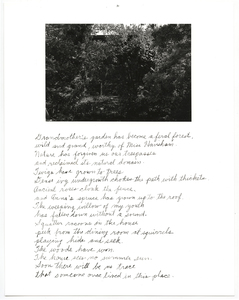 Grandmother's garden has become a feral forest,
wild and grand, worthy of Miss Havisham.
Nature has forgiven us our trespasses
and reclaimed its natural domain.
Twigs have grown to trees.
ivy undergrowth chokes the path with thickets.
roses climb the fence,
and spruce has grown up to the roof.
The weeping willow of my youth
has fallen down without a sound.
Squatter raccoons in the house
peek from the dining room at squirrels
playing hide and seek.
The woods have won.
The house sees no summer sun.
Soon there will be no trace
that someone once lived in this place.